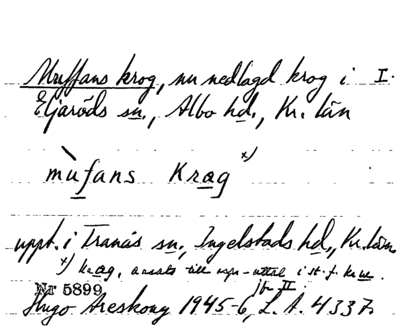 Muffans krog, nu nedlagd krog i I.
Eljaröds sn., Albo hd., Kr. län
mùfans Krag x)
uppt. i Tranås sn, Ingelstads hd, Kr. län
x) krag, ansats till uspr-uttal i st. f. kru
Nr 5899 jfr II.
Hugo Areskoug 1945-6, L. A. 4337.